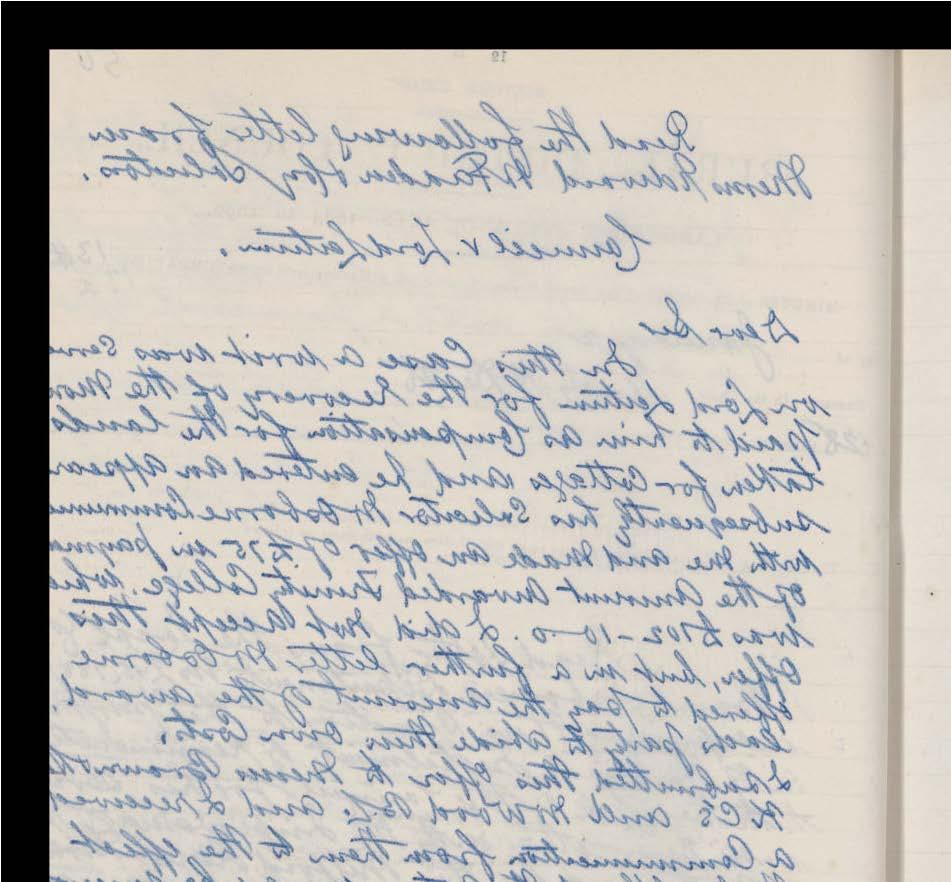 12
Read the following letter from
Messrs Edward McFadden & Coy Solicitors.
Council v. Lord Leitrim.
Dear Sir
In this Case a writ was Serve
on Lord Leitrim for the Recovery of the Mon
paid to him as Compensation for the lands
taken for Cottages and he entered an appear
subsequently his Solicitor Mr Osborne Commun
with me and made an Offer of £75 in payme
of the Amount Awarded Trinity College which
was £102-10-0. I did not accept this
Offer, but in a further letter Mr Osborne
offered to pay the amount of the award,
each party to abide their own Costs.
I submitted this Offer to Messrs
K.C's and McWood B.L. and I received
a Communication from them to the effect